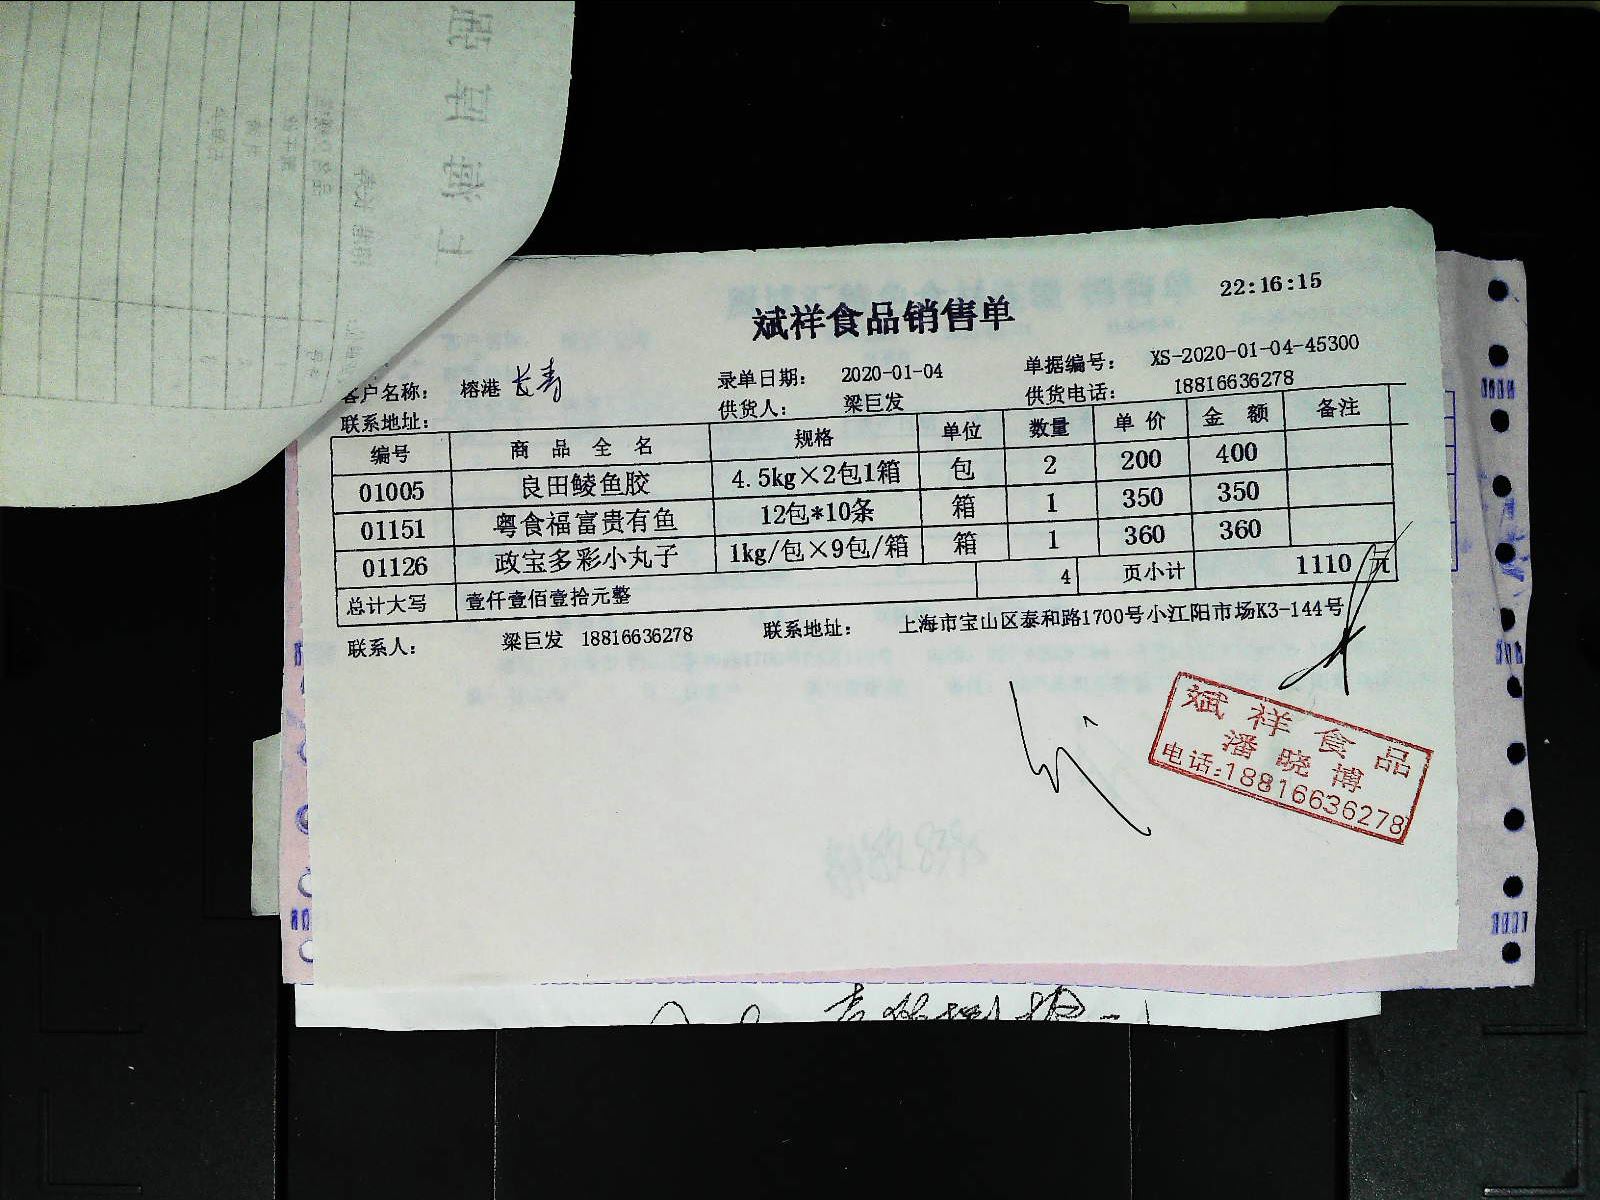 22:16:15
斌祥食品销售单
客户名称： 榕港 长青 录单日期： 2020-01-04 单据编号： XS-2020-01-04-45300
联系地址： 供货人： 梁巨发 供货电话： 18816636278
编号 商品全名 规格 单位 数量 单价 金额 备注
01005 良田鲮鱼胶 4.5kg×2包1箱 包 2 200 400
01151 粤食福富贵有鱼 12包*10条 箱 1 350 350
01126 政宝多彩小丸子 1kg/包×9包/箱 箱 1 360 360
总计大写 壹仟壹佰壹拾元整 4 页小计 1110 元
联系人： 梁巨发 18816636278 联系地址： 上海市宝山区泰和路1700号小江阳市场K3-144号
斌祥食品
潘晓博
电话:18816636278